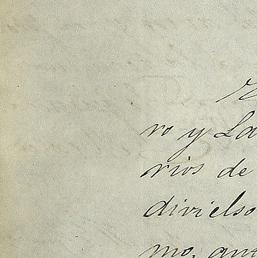 ro y La
rios de
divielso
mo, ant